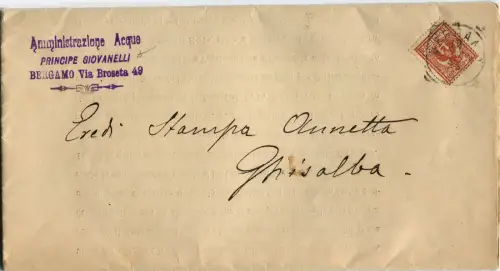 Amministrazione Acque
PRINCIPE GIOVANELLI
BERGAMO Via Broseta 49
Eredi Stampa Annetta
Ghisalba.